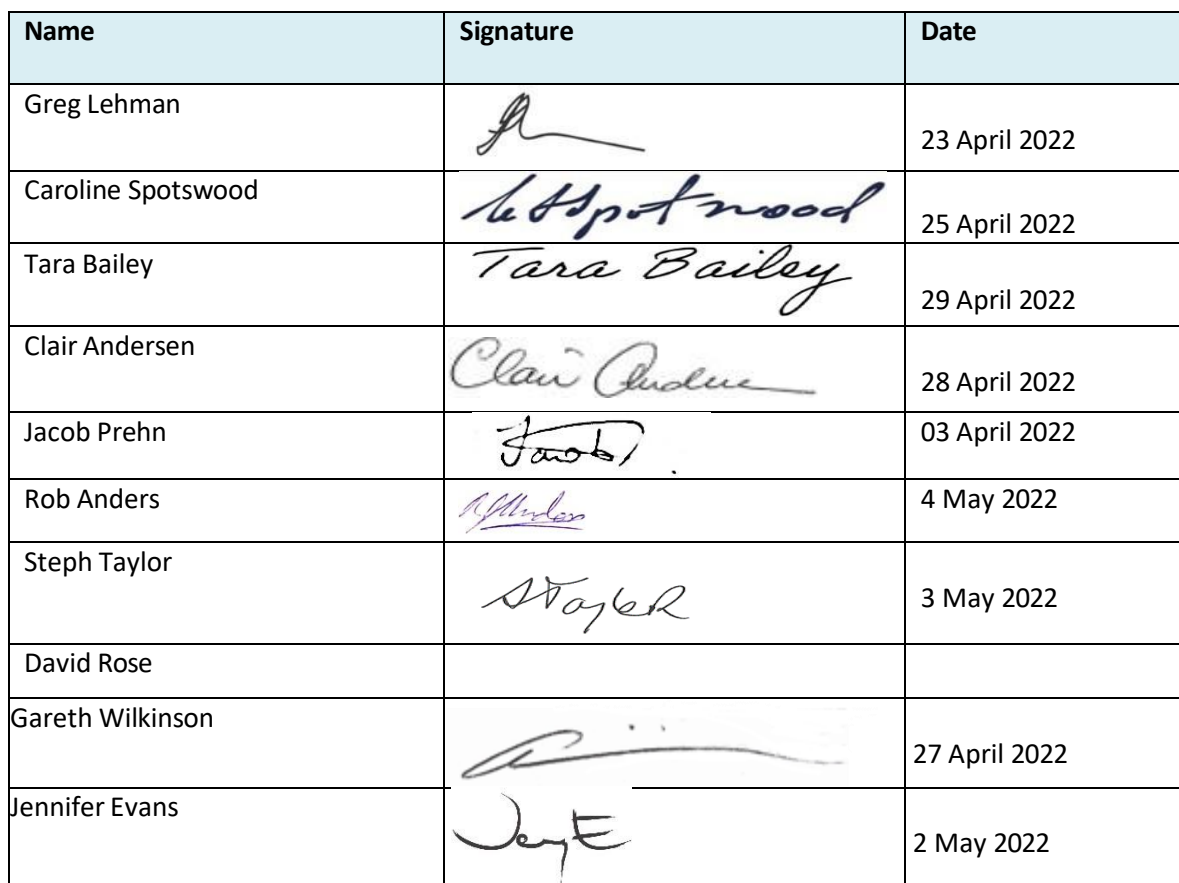 Name Signature Date
Greg Lehman 23 April 2022
Caroline Spotswood Spotswood 25 April 2022
Tara Bailey Tara Bailey 29 April 2022
Clair Andersen Clair 28 April 2022
Jacob Prehn Jacob 03 April 2022
Rob Anders 4 May 2022
Steph Taylor STaylor 3 May 2022
David Rose
Gareth Wilkinson 27 April 2022
Jennifer Evans 2 May 2022